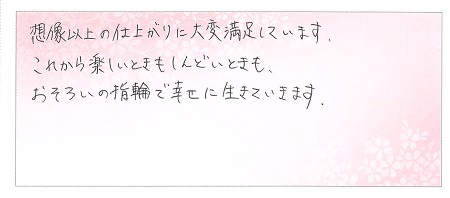 想像以上の仕上がりに大変満足しています.
これから楽しいときもしんどいときも、
おそろいの指輪で幸せに生きていきます.